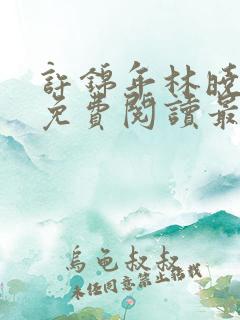 許錦年林曉
免費閱讀最
烏龜叔叔
未經同意禁止搭載